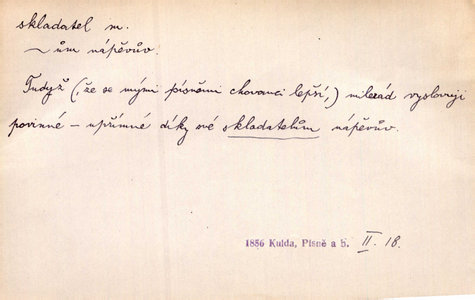 skladatel m.
~ům nápěvův.
Tudyž (, že se mými písněmi chovanci lepší,) milerád vyslovuji
povinné – upřímné díky své skladatelům nápěvův.
1856 Kulda, Písně a b. II. 18.